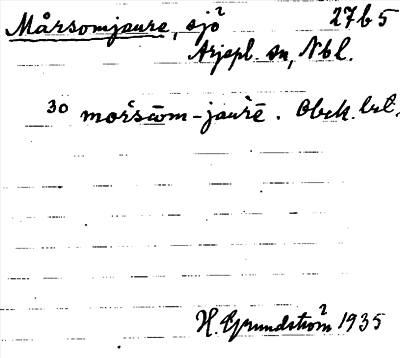 Mårsomjaure, sjö 27b5
Arjepl. sn, Nbl.
30 mårsōm-jaurē. Obek. bet.
H. Grundström 1935